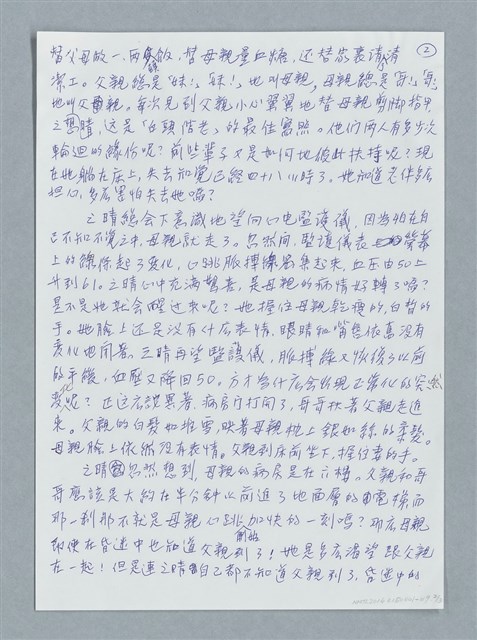 ②
替父母做一、兩餐飯,替母親量血糖,还替家裏清清
潔工。父親總是「妹!」「妹!」地叫母親,母親總是「哥!」「哥!」
地叫父親。每次見到父親小心翼翼地替母親剪脚指甲
之晴,这是「白頭偕老」的最佳寫照。他们两人有多少次
輪迴的緣份呢?前些輩子又是如何地彼此扶持呢?現
在她躺在床上,失去知覺已經四十八小時了。她知道老伴多麼
担心,多麼害怕失去她嗎?
之晴總会下意識地望向心电監護儀,因為怕在自
己不知不覺之中,母親就走了。忽然间,監護儀表螢幕
上的線條起了变化,心跳脈搏線密集起來,血压由50上
升到61。之晴心中充滿驚喜,是母親的病情好轉了嗎?
是不是她就会醒过來呢?她握住母親乾瘦的,白皙的
手。她脸上还是沒有什麼表情,眼睛和嘴唇依舊沒有
变化地闭着。之晴再望監護儀,脈搏線又恢復了以前
的平緩,血壓又降回50。方才為什麼会出現不正常化的突然
变化呢?正这麼疑異著,病房门打開了,哥哥扶著父親走進
來。父親的白髮如堆雪,映著母親枕上銀如絲的柔髮。
母親脸上依然沒有表情。父親到床前坐下,握住妻的手。
之晴忽然想到,母親的病房是在六楼。父親和哥
哥應該是大約在半分钟以前進了地面層的電梯,而
那一刹那不就是母親心跳加快的一刻嗎?那麼母親
即使在昏迷中也知道父親到了!她是多麼渴望跟父親
在一起!但是連之晴自己都不知道父親到了,昏迷中的